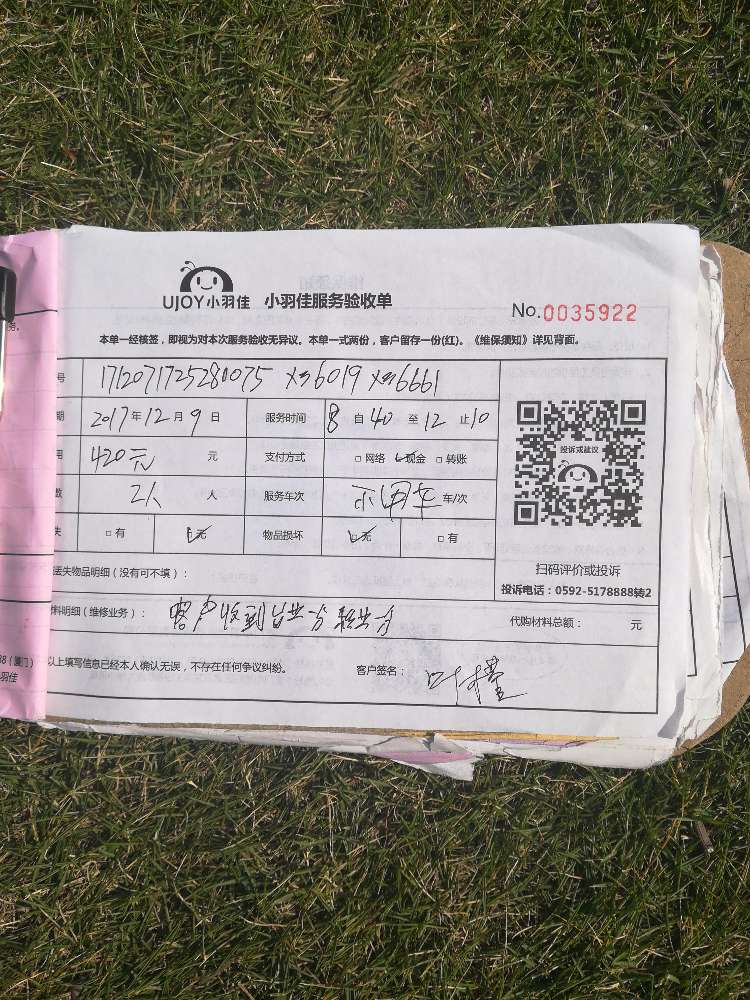 UJOY小羽佳 小羽佳服务验收单 No.0035922
本单一经核签，即视为对本次服务验收无异议。本单一式两份，客户留存一份(红)。《维保须知》详见背面。
号 1712071725280075 X36019 X36661
期 2017年12月9日 服务时间 8自40至12止10
用 420元 元 支付方式 □网络 ☑现金 □转账
数 2人 人 服务车次 不用车 车/次
失 □有 ☑无 物品损坏 ☑无 □有
投诉或建议
扫码评价或投诉
投诉电话：0592-5178888转2
丢失物品明细（没有可不填）：
料明细（维修业务）： 客户收到
代购材料总额： 元
以上填写信息已经本人确认无误，不存在任何争议纠纷。 客户签名： 叶
88（厦门）
小羽佳